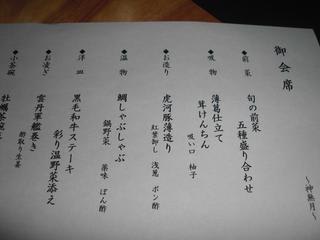 御会席
◆前菜
旬の前菜
五種盛り合わせ
～神無月～
◆吸物
薄葛仕立て
茸けんちん
吸い口 柚子
◆お造り
虎河豚薄造り
紅葉卸し 浅葱 ポン酢
◆温物
鯛しゃぶしゃぶ
鍋野菜 薬味 ぽん酢
◆洋皿
黒毛和牛ステーキ
彩り温野菜添え
◆お凌ぎ
雲丹軍艦巻き
酢取り生姜
◆小茶碗
牡蠣茶碗